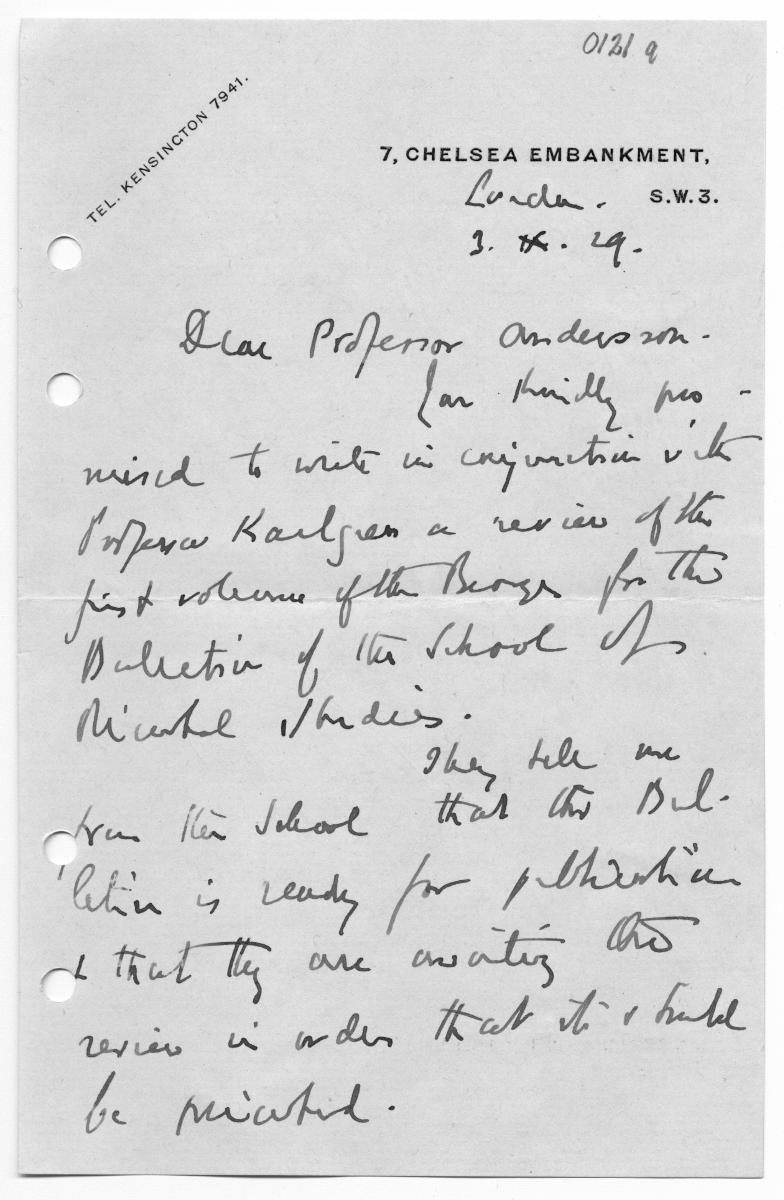 0121 a
TEL. KENSINGTON 7941.
7, CHELSEA EMBANKMENT,
London. S.W.3.
3. IX. 29.
Dear Professor Andersson.
You kindly pro-
mised to write in conjunction with
Professor Karlgren a review of the
first volume of the Bronzes for the
Bulletin of the School of
Oriental Studies.
They tell me
from the School that the Bul-
letin is ready for publication
& that they are awaiting this
review in order that it should
be printed.